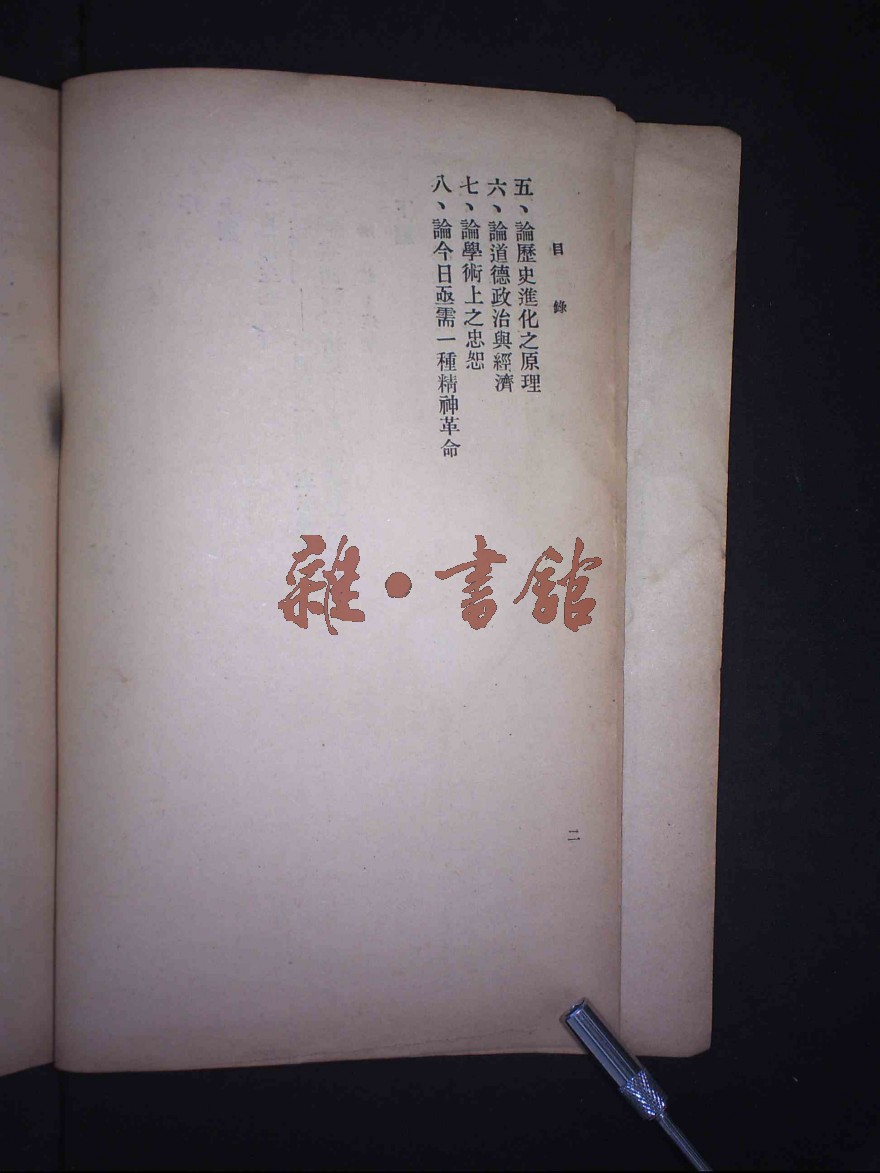 目錄
五、論歷史進化之原理
六、論道德政治與經濟
七、論學術上之忠恕
八、論今日亟需一種精神革命
二
雜·書館